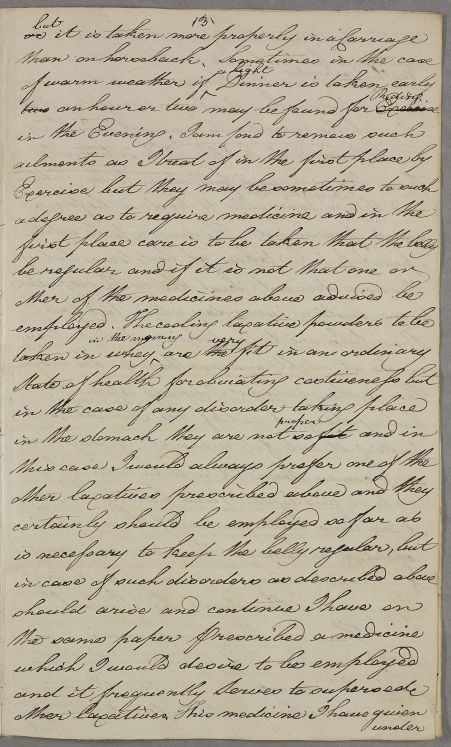 13
but
or it is taken more properly in a Carriage
than on horseback. Sometimes in the case
light
of warm weather if Dinner is taken early
an hour or two may be found for Exercise
in the Evening. I am fond to remove such
ailments as I treat of in the first place by
Exercise but they may be sometimes to such
a degree as to require medicine and in the
first place care is to be taken that the belly
be regular and if it is not that one or
other of the medicines above advised be
employed. The cooling laxative powders to be
in the morning very
taken in whey are the fit in an ordinary
State of health for obviating costiveness but
in the case of any disorder taking place
proper
in the stomach they are not so fit and in
this case I would always prefer one of the
other laxatives prescribed above and they
certainly should be employed so far as
is necessary to keep the belly regular, but
in case of such disorders as described above
should arise and continue I have on
the same paper prescribed a medicine
which I would desire to be employed
and it frequently serves to supersede
other laxatives. This medicine I have given
under